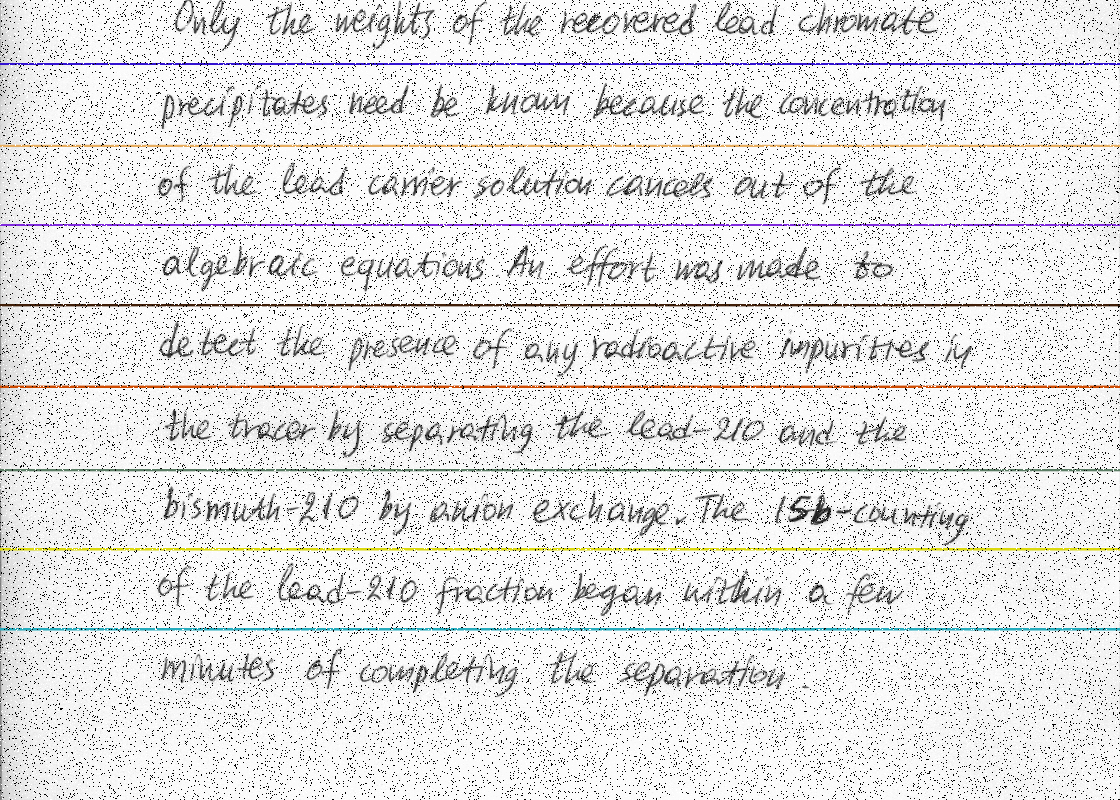 Only the weights of the recovered lead chromate
precipitates need be known because the concentration
of the lead carrier solution cancels out of the
algebraic equations An effort was made to
detect the presence of any radioactive impurities in
the tracer by separating the lead-210 and the
bismuth-210 by anion exchange. The -counting
of the lead-210 fraction began within a few
minutes of completing the separation.